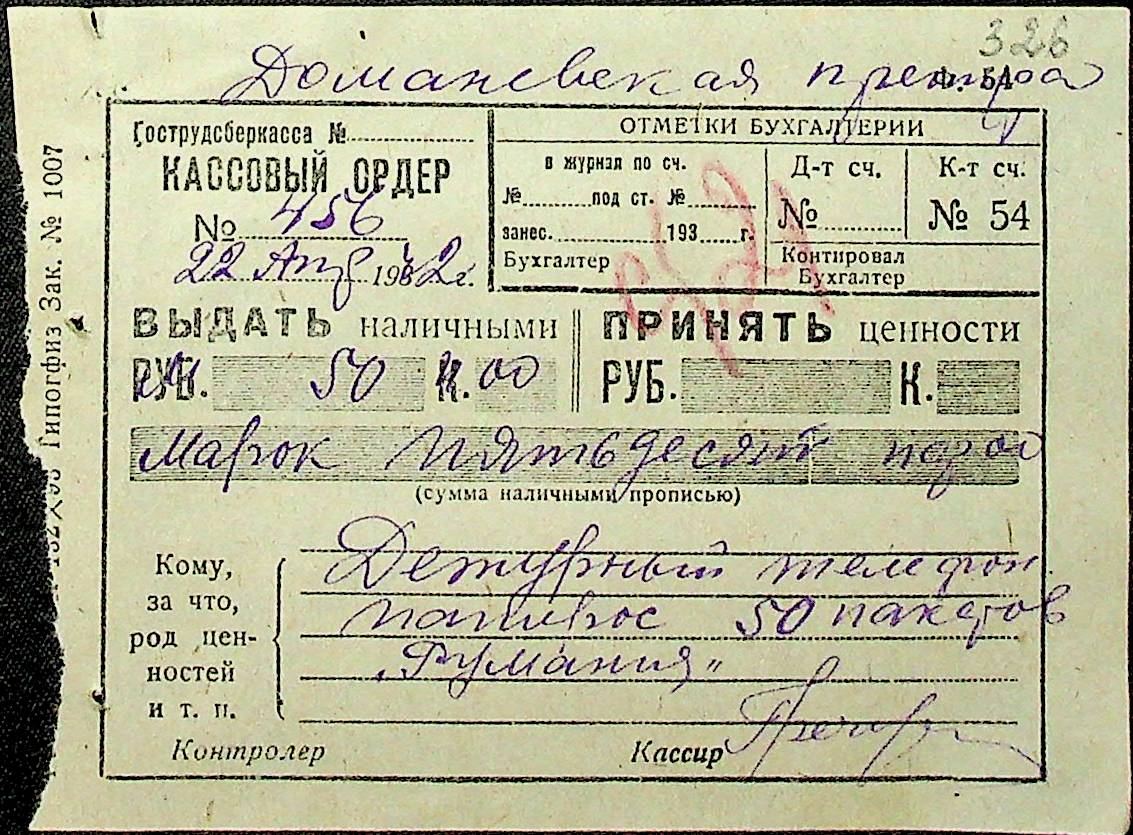 326
Доманевская претура
Ф. 54
Гострудсберкасса №
КАССОВЫЙ ОРДЕР
№ 456
22 Апр 1942 г.
ОТМЕТКИ БУХГАЛТЕРИИ
в журнал по сч.
№ под ст. №
занес. 193 г.
Бухгалтер
Д-т сч.
№
К-т сч.
№ 54
Контировал
Бухгалтер
ВЫДАТЬ наличными
РУБ. 50 К. 00
ПРИНЯТЬ ценности
РУБ. К.
Марок пятьдесят
(сумма наличными прописью)
Кому,
за что,
род цен-
ностей
и т. п.
Дежурный телефон.
папирос 50 пакетов
„Румания"
Контролер
Кассир
Типогфиз Зак. № 1007